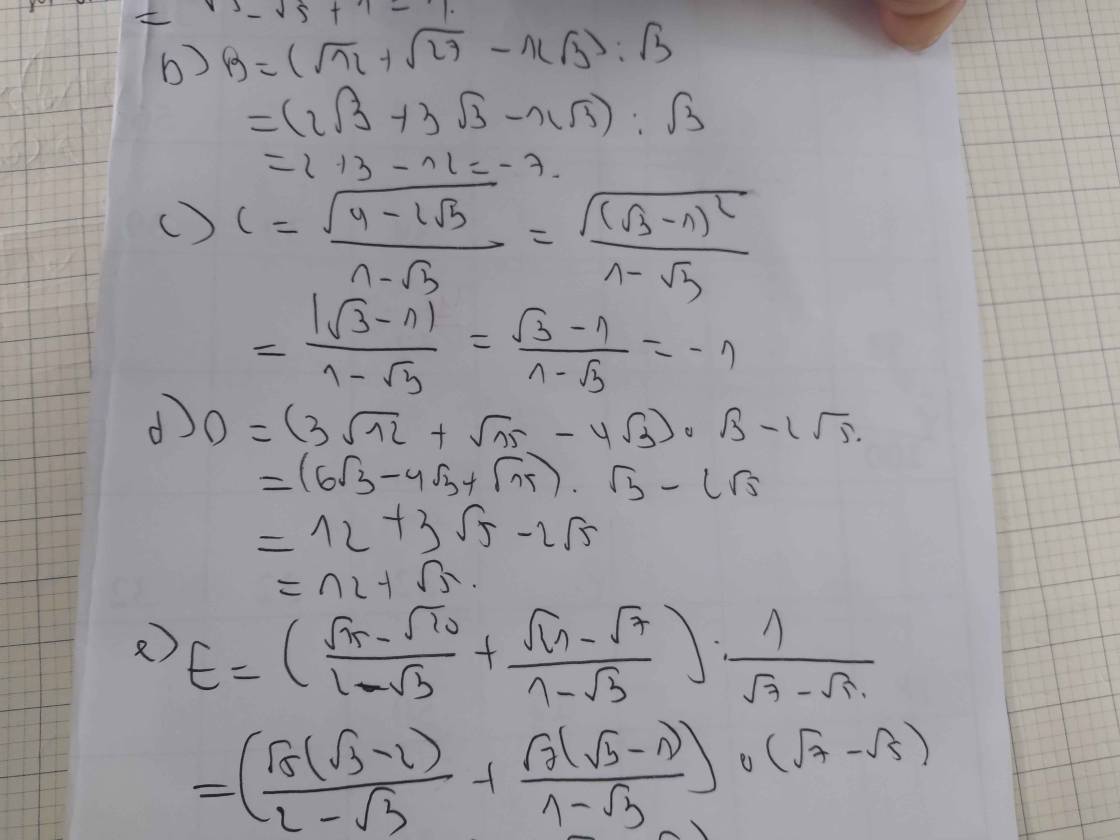 = √5 - √5 + 1 = 1.
b) B = (√12 + √27 - 12√3) : √3
= (2√3 + 3√3 - 12√3) : √3
= 2 + 3 - 12 = -7.
c) C = √(4 - 2√3) / (1 - √3) = √((√3 - 1)²) / (1 - √3)
= |√3 - 1| / (1 - √3) = (√3 - 1) / (1 - √3) = -1
d) D = (3√12 + √15 - 4√3) . √3 - 2√5.
= (6√3 - 4√3 + √15) . √3 - 2√5
= 12 + 3√5 - 2√5
= 12 + √5.
e) E = ((√15 - √20) / (2 - √3) + (√21 - √7) / (1 - √3)) : 1 / (√7 - √5).
= (√5(√3 - 2) / (2 - √3) + √7(√3 - 1) / (1 - √3)) . (√7 - √5)